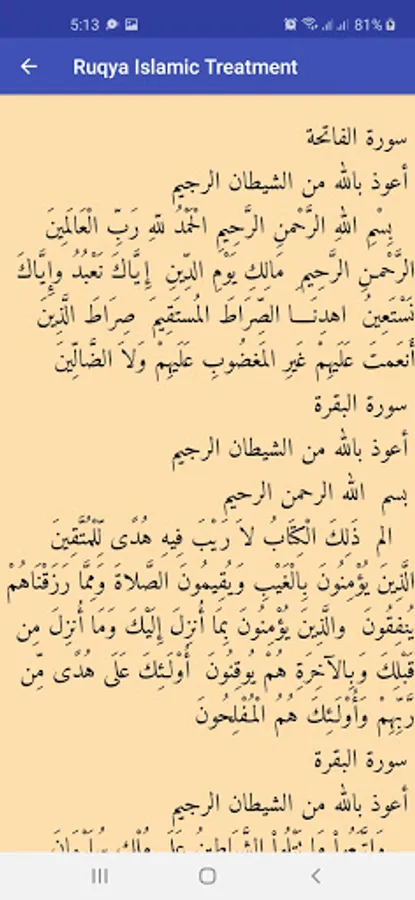 5:13
81%
Ruqya Islamic Treatment
سورة الفاتحة
أعوذ بالله من الشيطان الرجيم
بِسْمِ اللهِ الرَّحْمنِ الرَّحِيمِ الْحَمْدُ للهِ رَبِّ الْعَالَمِينَ
الرَّحْمـنِ الرَّحِيمِ مَالِكِ يَوْمِ الدِّينِ إِيَّاكَ نَعْبُدُ وإِيَّاكَ
نَسْتَعِينُ اهدِنَــــا الصِّرَاطَ المُستَقِيمَ صِرَاطَ الَّذِينَ
أَنعَمتَ عَلَيهِمْ غَيرِ المَغضُوبِ عَلَيهِمْ وَلاَ الضَّالِّينَ
سورة البقرة
أعوذ بالله من الشيطان الرجيم
بسم الله الرحمن الرحيم
الم ذَلِكَ الْكِتَابُ لاَ رَيْبَ فِيهِ هُدًى لِّلْمُتَّقِينَ
الَّذِينَ يُؤْمِنُونَ بِالْغَيْبِ وَيُقِيمُونَ الصَّلاةَ وَمِمَّا رَزَقْنَاهُمْ
يُنفِقُونَ والَّذِينَ يُؤْمِنُونَ بِمَا أُنزِلَ إِلَيْكَ وَمَا أُنزِلَ مِن
قَبْلِكَ وَبِالآخِرَةِ هُمْ يُوقِنُونَ أُوْلَـئِكَ عَلَى هُدًى مِّن
رَّبِّهِمْ وَأُوْلَـئِكَ هُمُ الْمُفْلِحُونَ
سورة البقرة
أعوذ بالله من الشيطان الرجيم
وَاتَّبَعُواْ مَا تَتْلُواْ الشَّيَاطِينُ عَلَى مُلْكِ سُلَيْمَانَ